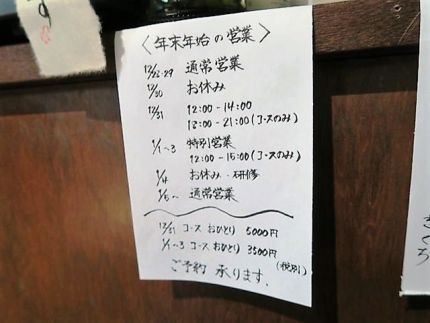 〈年末年始の営業〉
12/28・29 通常営業
12/30 お休み
12/31 12:00-14:00
18:00-21:00(コースのみ)
1/1~3 特別営業
12:00-15:00(コースのみ)
1/4 お休み・研修
1/5~ 通常営業
12/31 コース おひとり 5000円
1/1~3 コース おひとり 3500円
(税別)
ご予約 承ります.